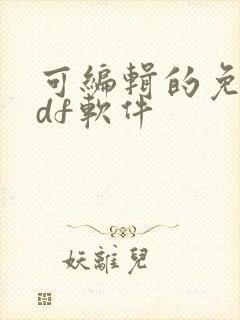 可編輯的免
df軟件
妖離兒